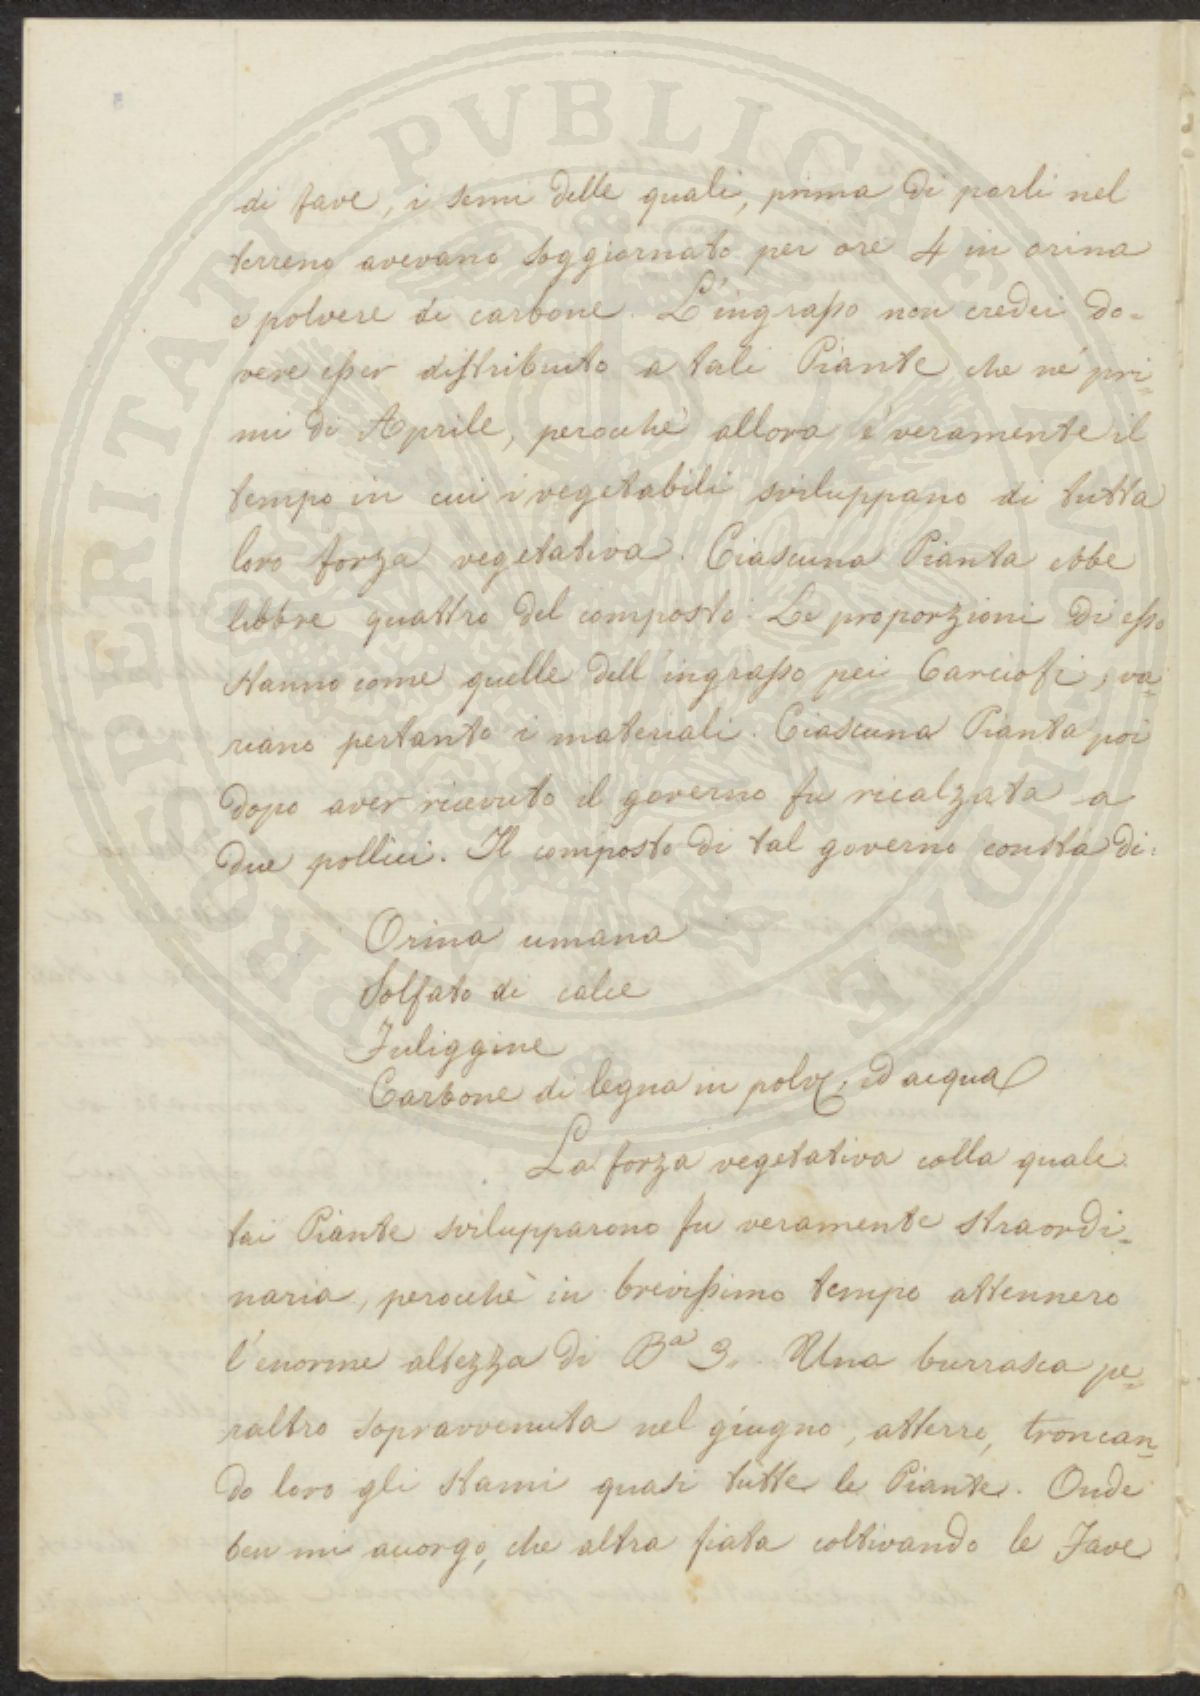 di fave, i semi delle quali, prima di porli nel
terreno avevano soggiornato per ore 4 in orina
e polvere di carbone. L'ingrasso non credei do=
vere esser distribuito a tali Piante che né pri=
mi di Aprile, perocchè allora è veramente il
tempo in cui i vegetabili sviluppano di tutta
loro forza vegetativa. Ciascuna Pianta ebbe
libbre quattro del composto. Le proporzioni di esso
stanno come quelle dell'ingrasso pei Carciofi, va=
riano pertanto i materiali. Ciascuna Pianta poi
dopo aver ricevuto il governo fu ricalzata a
due pollici. Il composto di tal governo consta di:
Orina umana
Solfato di calce
Fuliggine
Carbone di legna in polv, ed acqua
La forza vegetativa colla quale
tai Piante svilupparono fu veramente straordi=
naria, perocchè in brevissimo tempo attennero
l'enorme altezza di Ba 3. Una burrasca pe=
raltro sopravvenuta nel giugno, atterrò, troncan=
do loro gli stami quasi tutte le Piante. Onde
ben mi accorgo, che altra fiata coltivando le Fave
PROSPERITATI PVBLICAE AVGENDAE